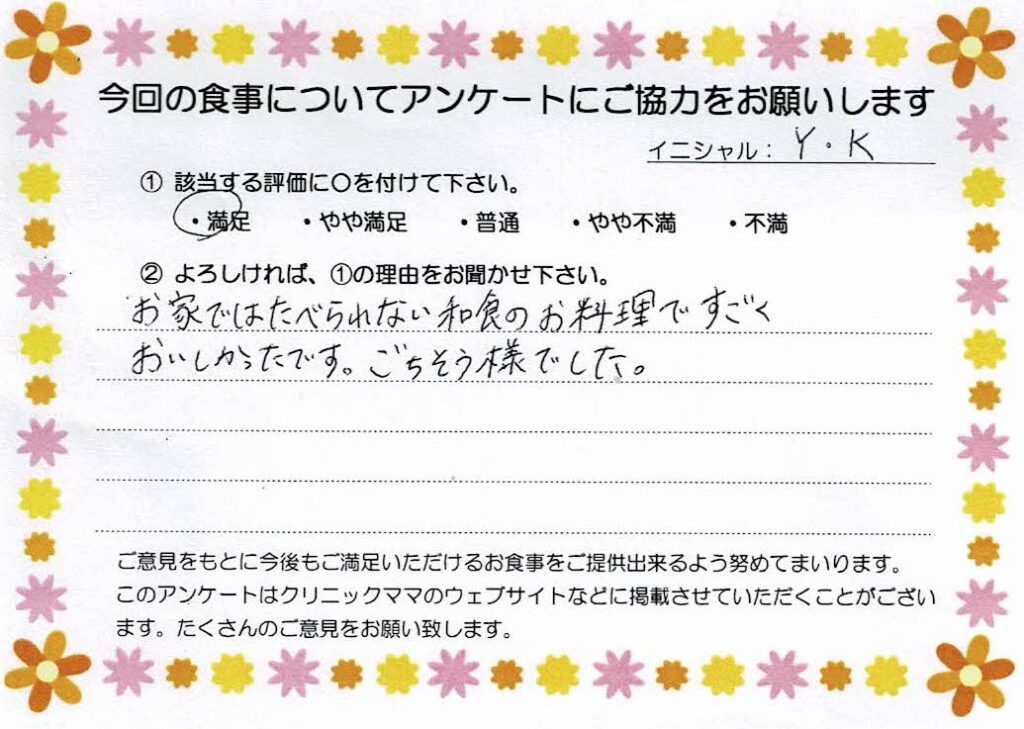 今回の食事についてアンケートにご協力をお願いします
イニシャル：Y・K
① 該当する評価に〇を付けて下さい。
・満足 ・やや満足 ・普通 ・やや不満 ・不満
② よろしければ、①の理由をお聞かせ下さい。
お家ではたべられない和食のお料理ですごく
おいしかったです。ごちそう様でした。
ご意見をもとに今後もご満足いただけるお食事をご提供出来るよう努めてまいります。
このアンケートはクリニックママのウェブサイトなどに掲載させていただくことがござい
ます。たくさんのご意見をお願い致します。